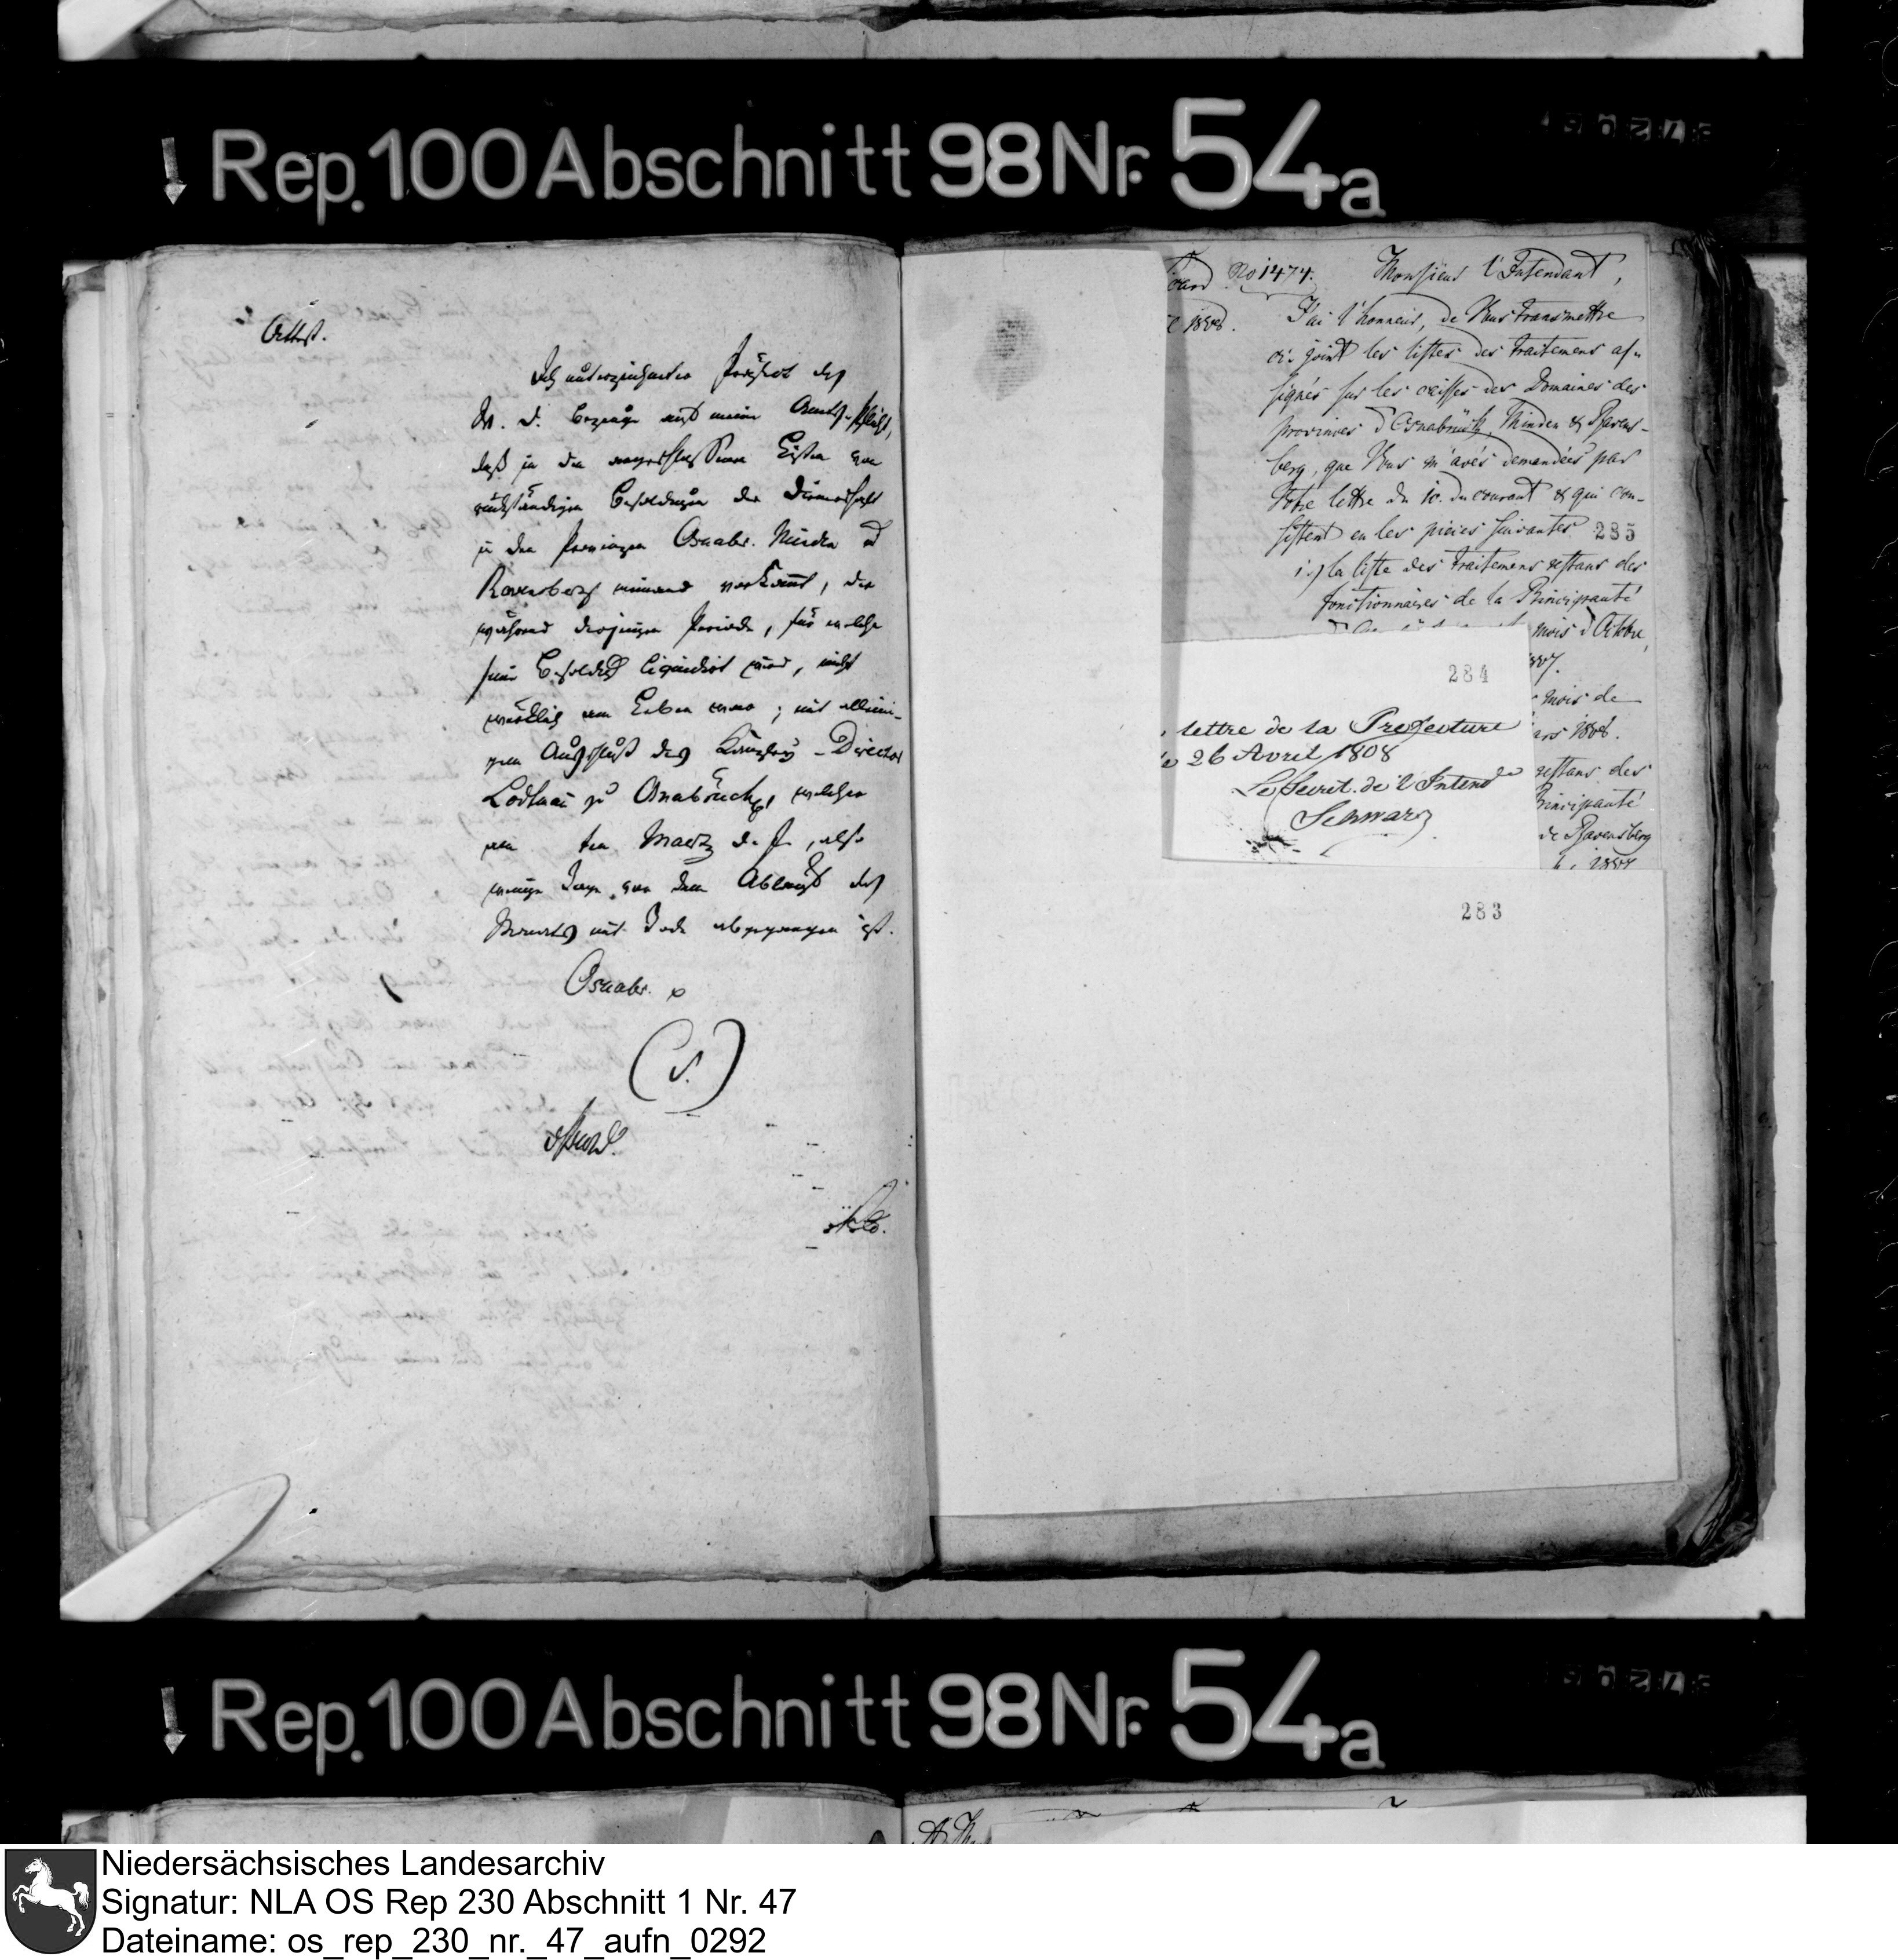 Rep. 100 Abschnitt 98 Nr. 54a
Attest.
Ich unterzeichneter Präfect des
W. D. bezeuge auf meine Amts-Pflicht,
daß in den Listen von
rückständigen Besoldungen der Dienerschaft
in den Provinzen Osnabr. Minden
Ravensberg niemand vorkömt, der
während derjenigen Periode, für welche
seine liquidirt wird, nicht
würklich am Leben war; mit alleini-
gem Ausschluß des Canzley-Director
Lodtman zu Osnabrück, welcher
am ten Maerz d. J., also
wenige Tage vor dem Ablauf des
Monats mit Tode abgegangen ist.
Osnabr.
(S.)
No 1474. Monsieur l'Intendant,
1808. J'ai l'honneur, de Vous transmettre
ci-joint les listes des traitemens as-
signés sur les caisses des Domaines des
provinces d'Osnabrück, Minden & Ravens-
berg, que Vous m'avés demandées par
Votre lettre du 10. du courant & qui con-
sistent en les pièces suivantes 285
1.) la liste des traitemens restans des
fonctionnaires de la Principauté
mois d'Octobre,
mois de
1808.
restans des
Principauté
de Ravensberg
284
lettre de la Prefecture
26 Avril 1808
Le Secret. de l'Intend
Schwarz
283
Rep. 100 Abschnitt 98 Nr. 54a
Niedersächsisches Landesarchiv
Signatur: NLA OS Rep 230 Abschnitt 1 Nr. 47
Dateiname: os_rep_230_nr._47_aufn_0292